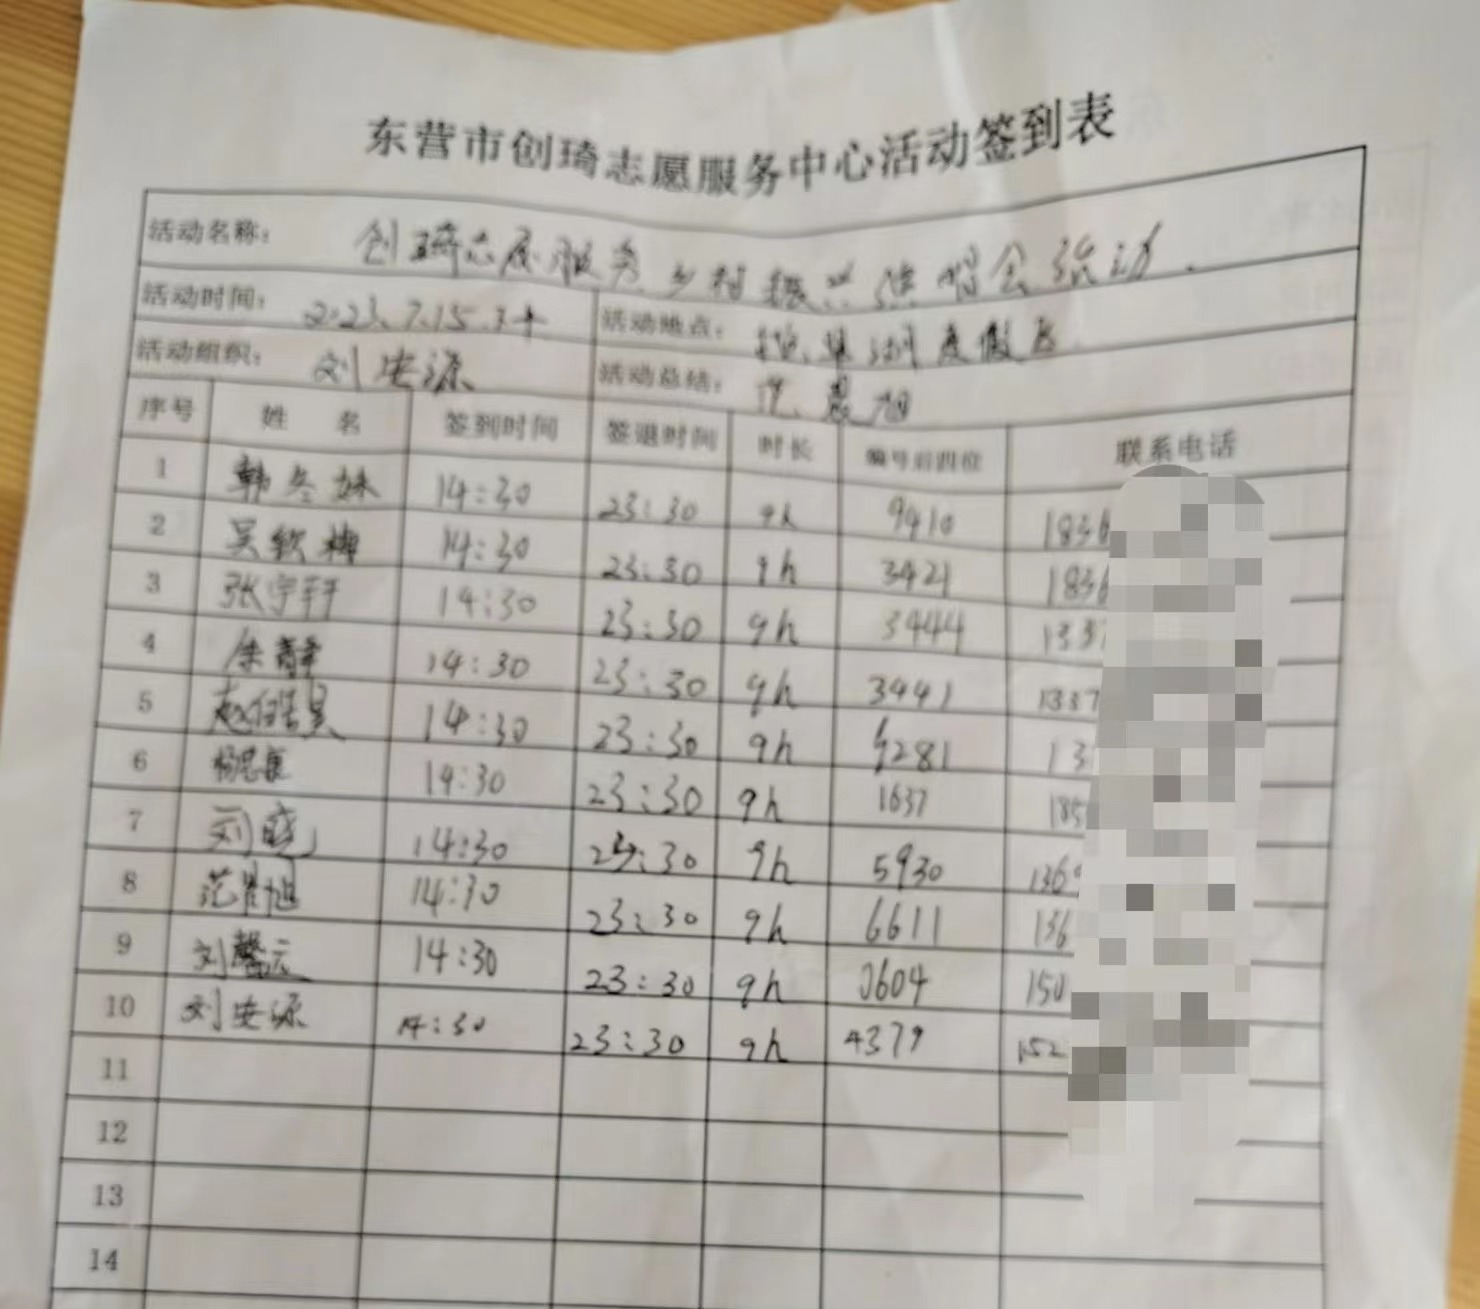 东营市创琦志愿服务中心活动签到表
活动名称： 创琦志愿服务乡村振兴演唱会活动.
活动时间： 2023.7.15.下午 活动地点： 湖度假区
活动组织： 刘安源 活动总结： 范晨旭
序号 姓 名 签到时间 签退时间 时长 编号后四位 联系电话
1 韩冬妹 14:30 23:30 9h 9410 1836
2 吴钦梅 14:30 23:30 9h 3421 1836
3 张宇轩 14:30 23:30 9h 3444 1337
4 14:30 23:30 9h 3441 1337
5 赵 昊 14:30 23:30 9h 9281 13
6 14:30 23:30 9h 1637 185
7 刘晓 14:30 23:30 9h 5930 136
8 范晨旭 14:30 23:30 9h 6611 136
9 刘馨云 14:30 23:30 9h 0604 150
10 刘安源 14:30 23:30 9h 4379 152
11
12
13
14